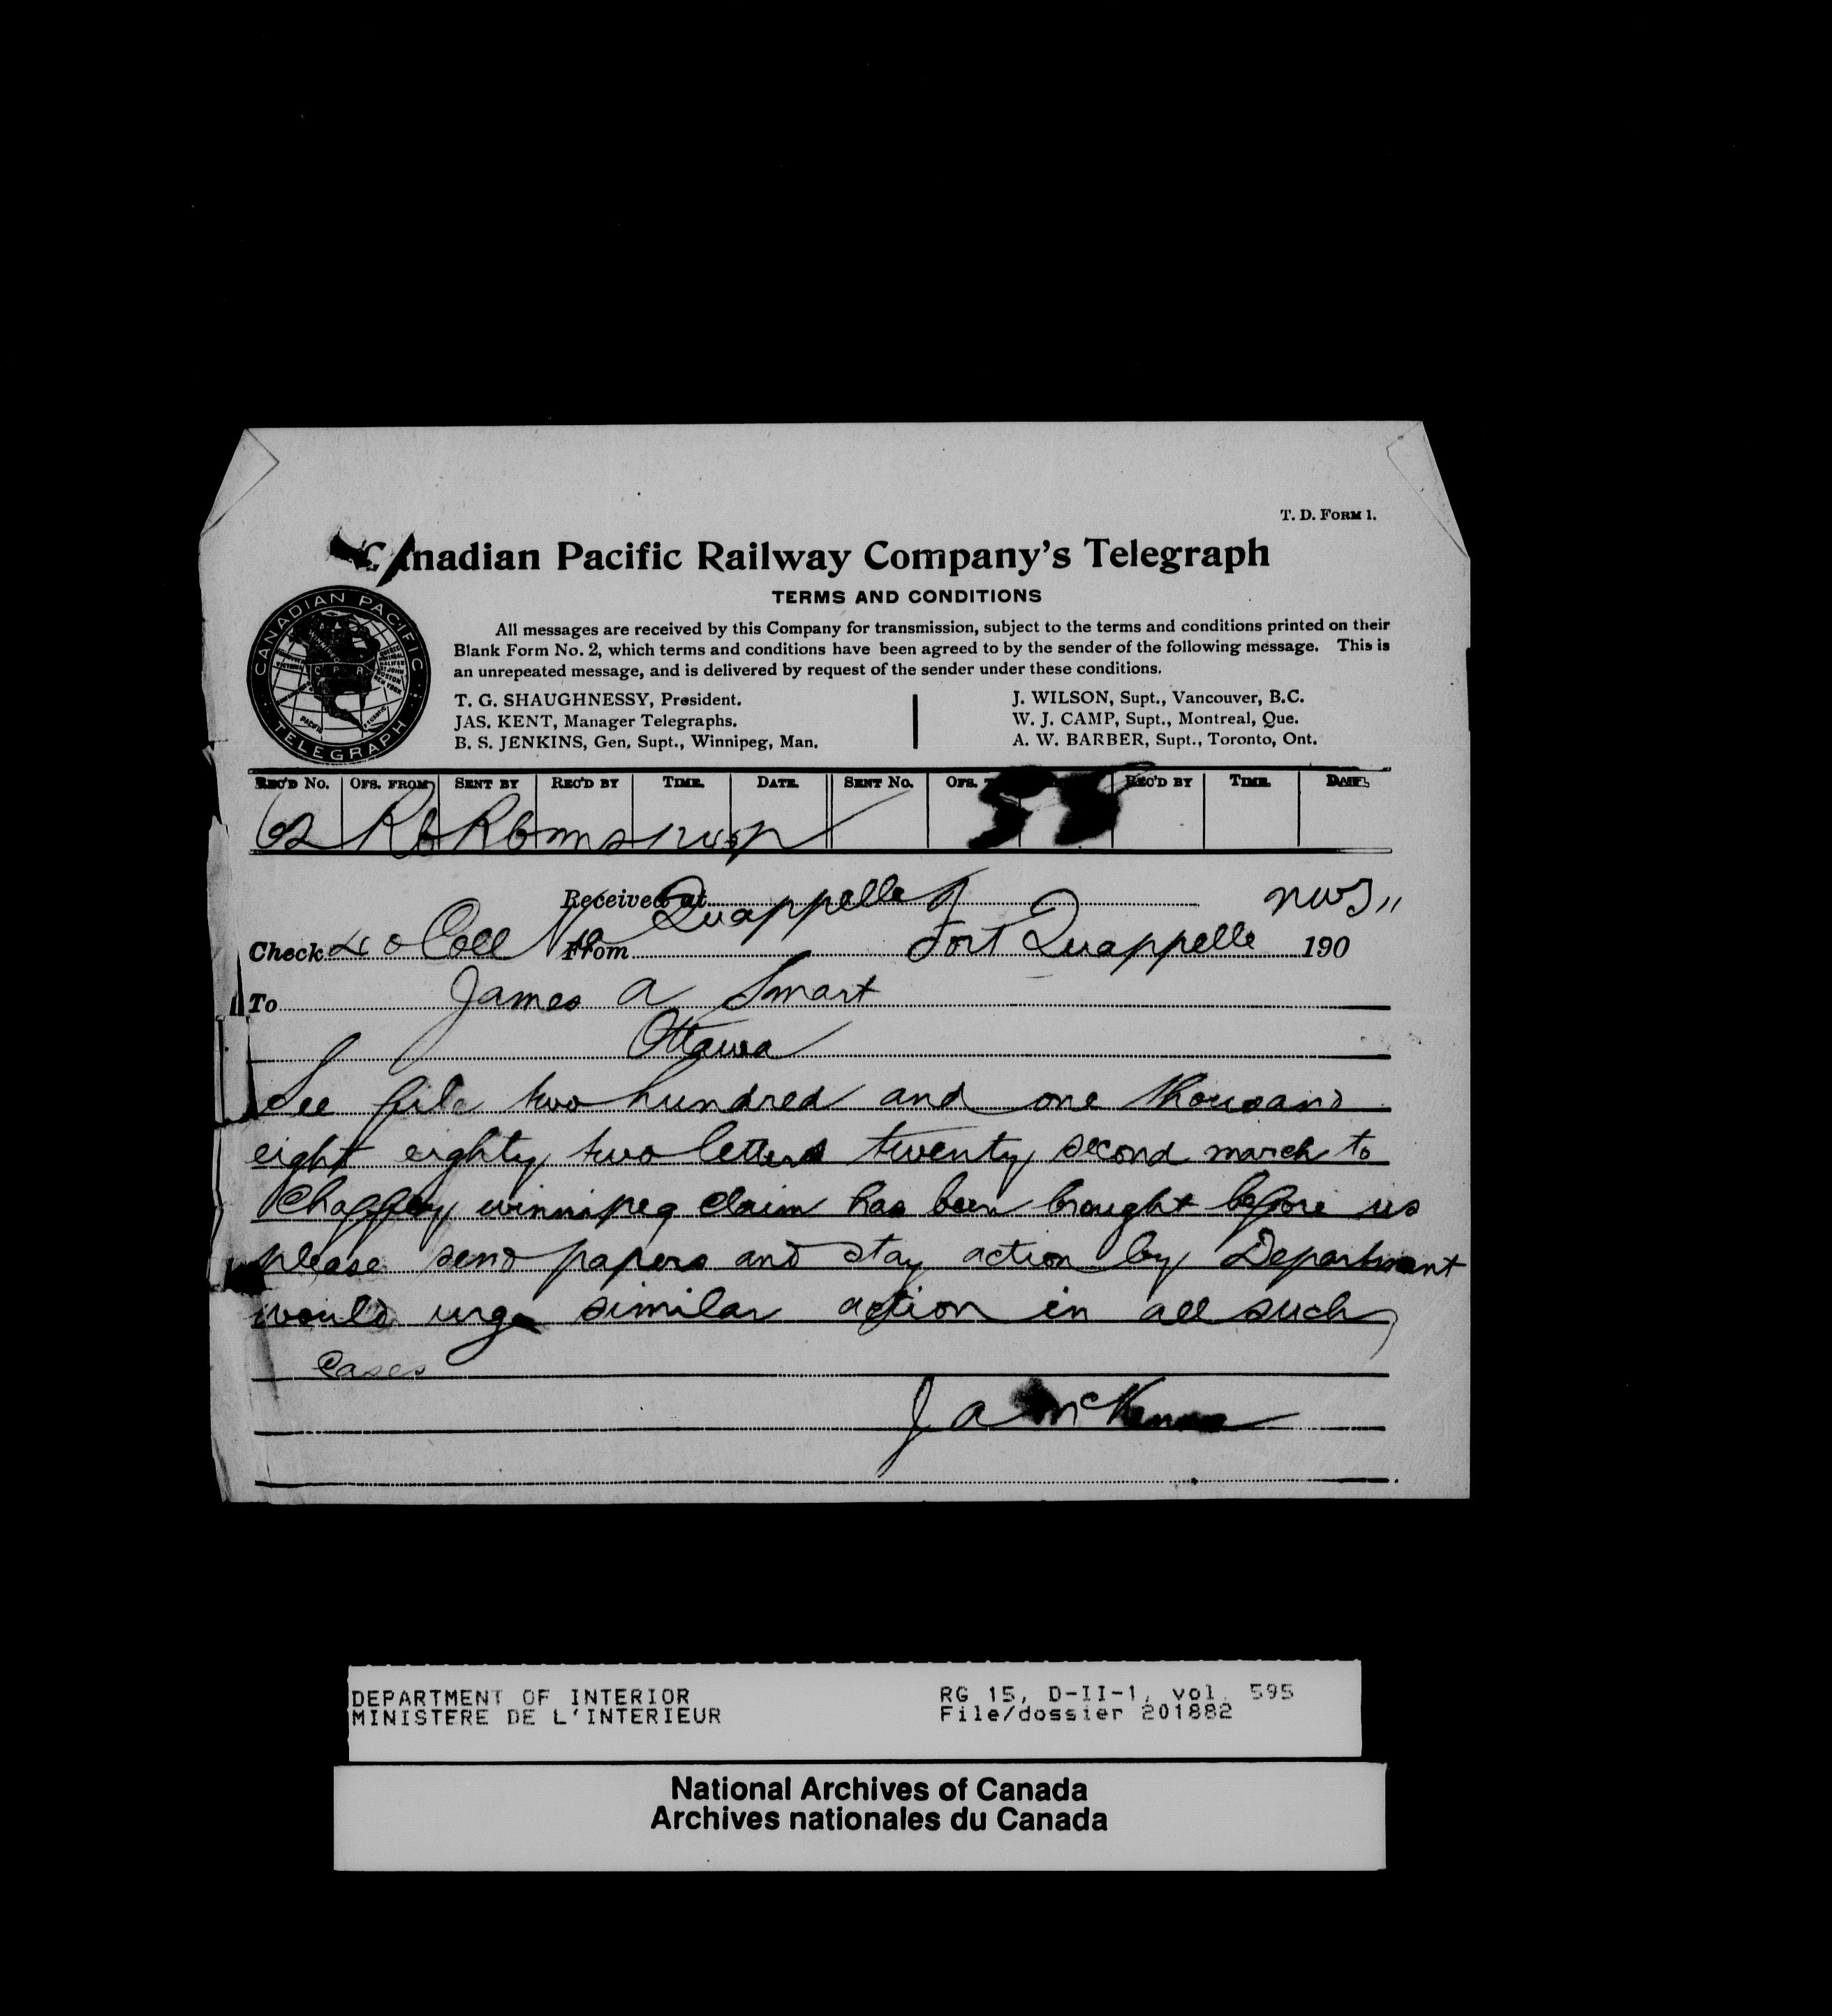 T. D. FORM 1.
Canadian Pacific Railway Company's Telegraph
TERMS AND CONDITIONS
All messages are received by this Company for transmission, subject to the terms and conditions printed on their
Blank Form No. 2, which terms and conditions have been agreed to by the sender of the following message. This is
an unrepeated message, and is delivered by request of the sender under these conditions.
T. G. SHAUGHNESSY, President.
JAS. KENT, Manager Telegraphs.
B. S. JENKINS, Gen. Supt., Winnipeg, Man.
J. WILSON, Supt., Vancouver, B.C.
W. J. CAMP, Supt., Montreal, Que.
A. W. BARBER, Supt., Toronto, Ont.
CANADIAN PACIFIC
TELEGRAPH
REC'D NO. OFS. FROM SENT BY REC'D BY TIME. DATE. SENT NO. OFS. REC'D BY TIME. DATE.
62 Rb Rb ms
Received at Quappelle NWT 11
Check 40 Coll From Fort Quappelle 190
To James A Smart
Ottawa
See file two hundred and one thousand
eight eighty two letters twenty second march to
Chaffey winnipeg claim has been brought before us
please send papers and stay action by Department
would urge similar action in all such
cases
J A McKenna
DEPARTMENT OF INTERIOR
MINISTERE DE L'INTERIEUR
RG 15, D-II-1, vol. 595
File/dossier 201882
National Archives of Canada
Archives nationales du Canada